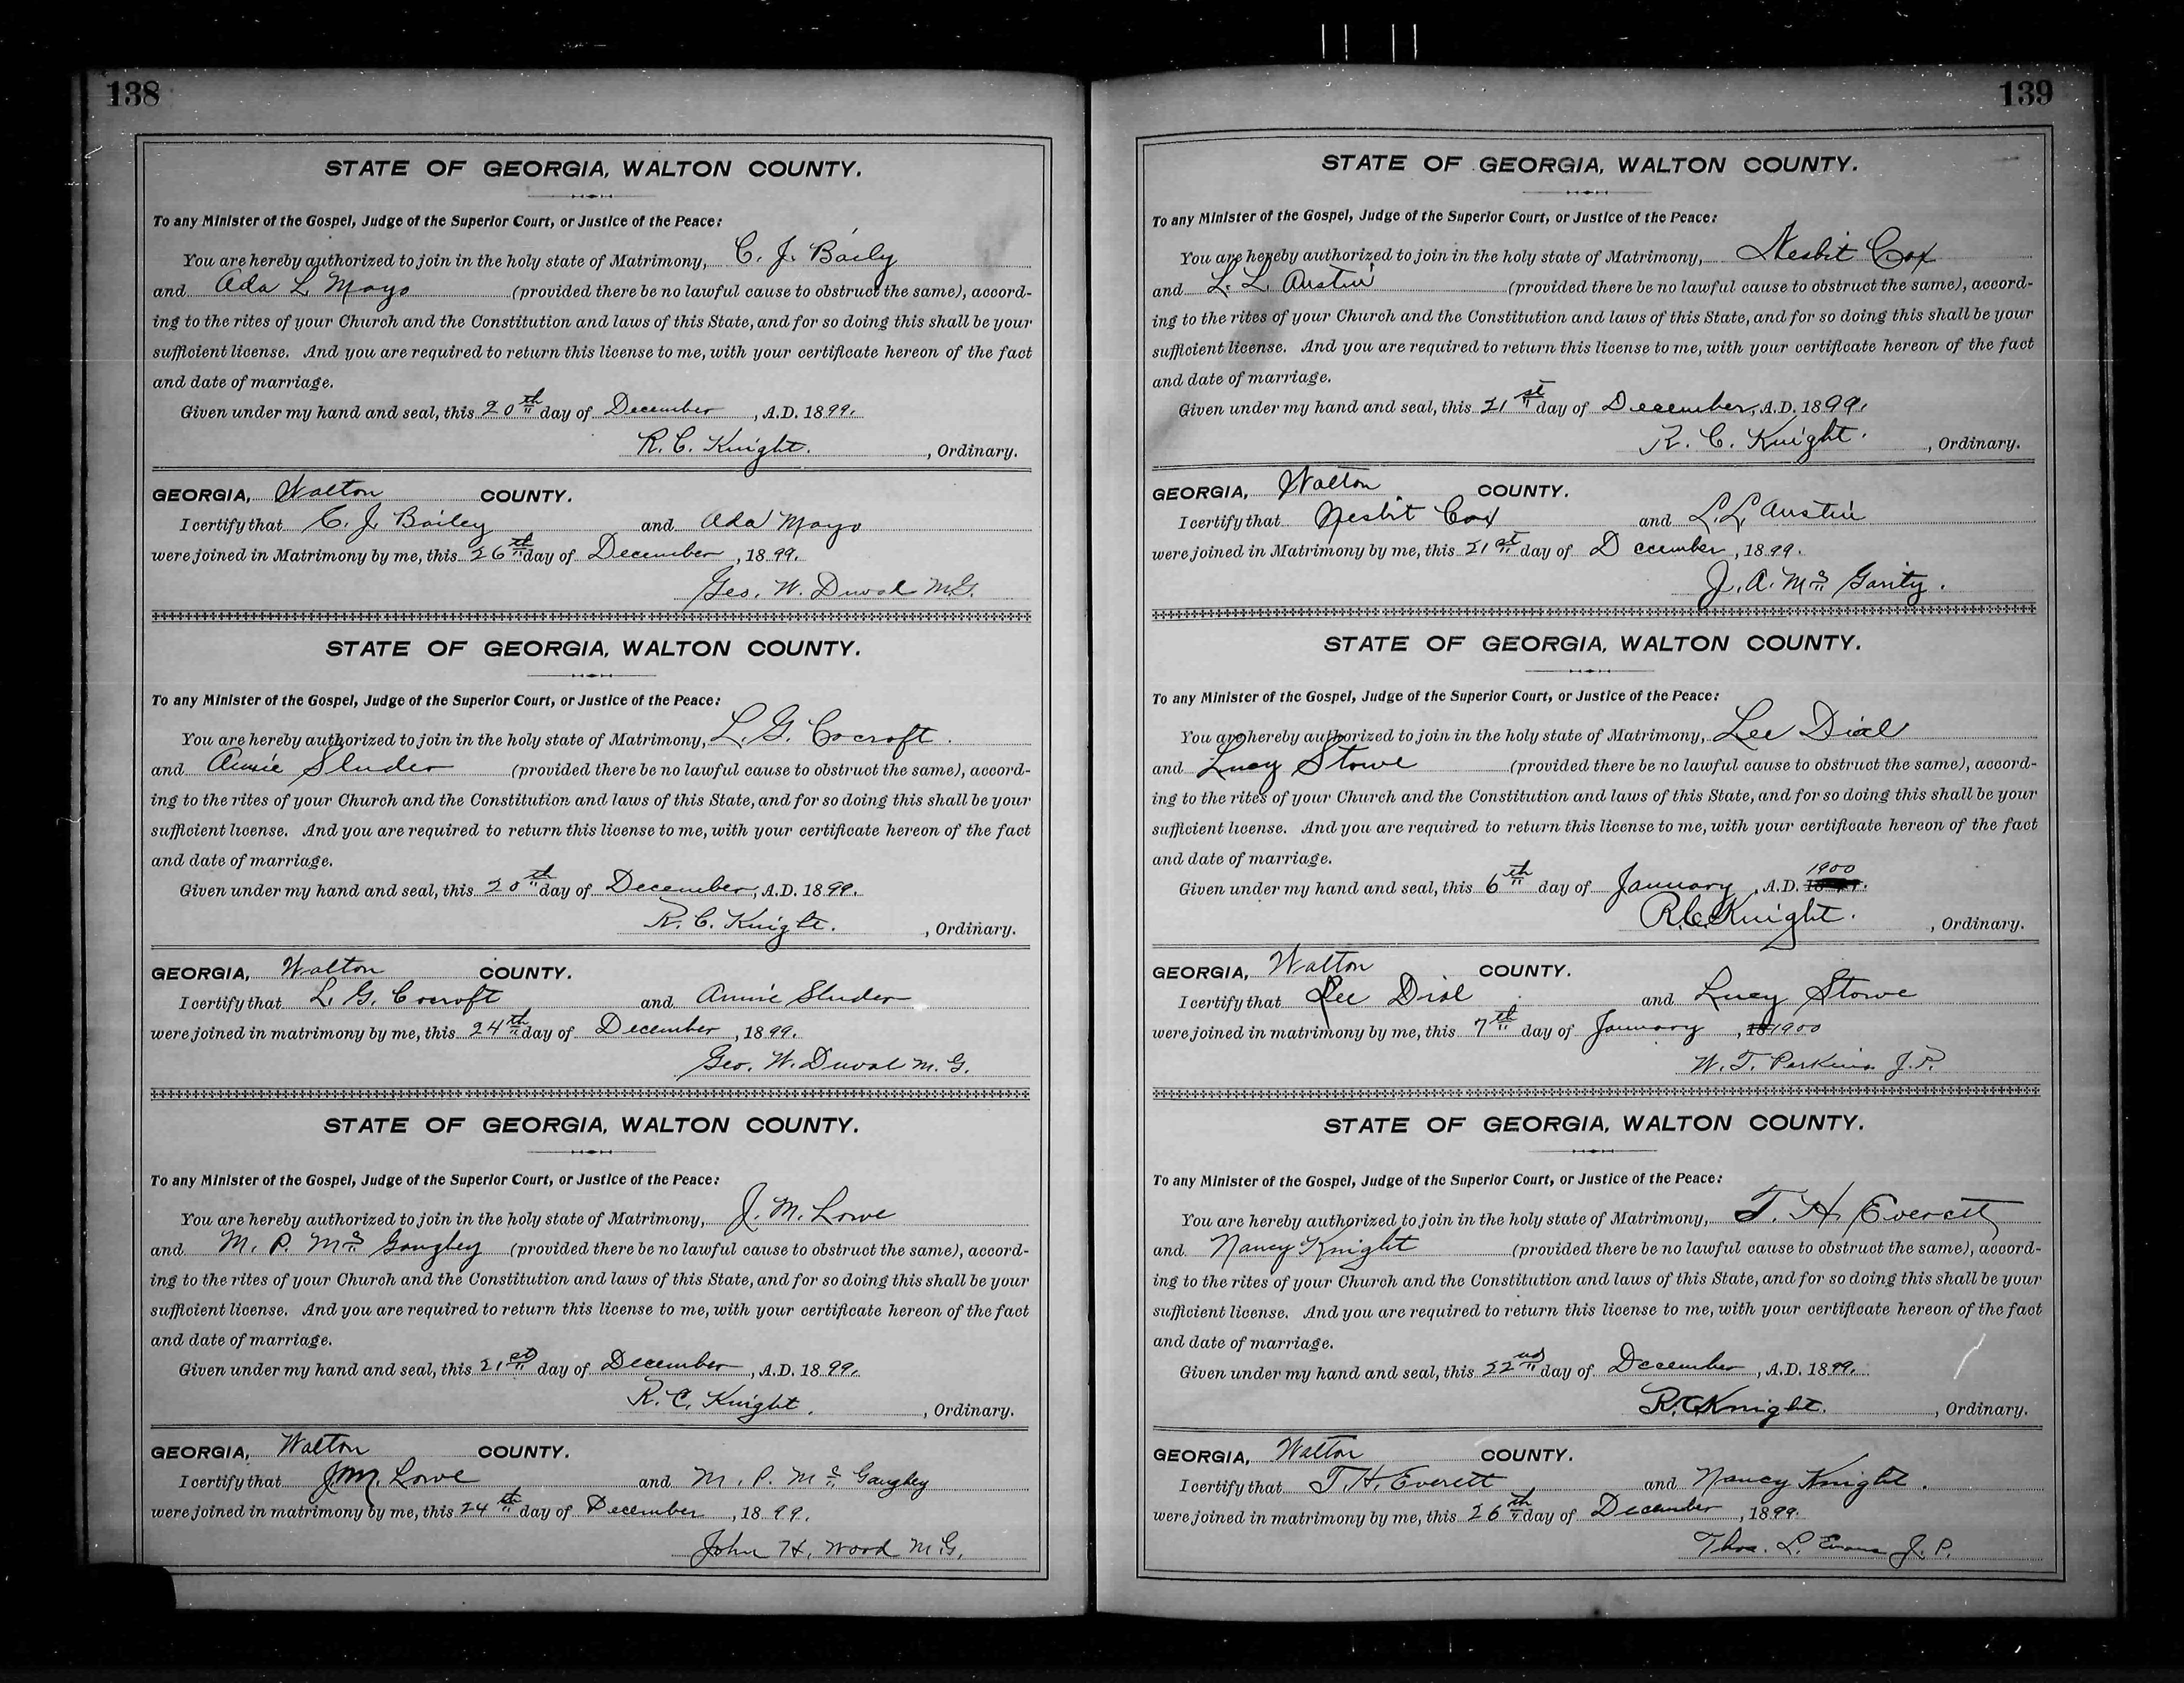 138
STATE OF GEORGIA, WALTON COUNTY.
To any Minister of the Gospel, Judge of the Superior Court, or Justice of the Peace:
You are hereby authorized to join in the holy state of Matrimony, C. J. Baily
and Ada L. Mayo (provided there be no lawful cause to obstruct the same), accord-
ing to the rites of your Church and the Constitution and laws of this State, and for so doing this shall be your
sufficient license. And you are required to return this license to me, with your certificate hereon of the fact
and date of marriage.
Given under my hand and seal, this 20th day of December, A.D. 1899.
R. C. Knight, Ordinary.
GEORGIA, Walton COUNTY.
I certify that C. J. Bailey and Ada Mayo
were joined in Matrimony by me, this 26th day of December, 1899.
Geo. W. Duval M.G.
STATE OF GEORGIA, WALTON COUNTY.
To any Minister of the Gospel, Judge of the Superior Court, or Justice of the Peace:
You are hereby authorized to join in the holy state of Matrimony, L. G. Cocroft.
and Annie Sluder (provided there be no lawful cause to obstruct the same), accord-
ing to the rites of your Church and the Constitution and laws of this State, and for so doing this shall be your
sufficient license. And you are required to return this license to me, with your certificate hereon of the fact
and date of marriage.
Given under my hand and seal, this 20th day of December, A.D. 1899.
R. C. Knight., Ordinary.
GEORGIA, Walton COUNTY.
I certify that L. G. Cocroft and Annie Sluder
were joined in matrimony by me, this 24th day of December, 1899.
Geo. W. Duval M. G.
STATE OF GEORGIA, WALTON COUNTY.
To any Minister of the Gospel, Judge of the Superior Court, or Justice of the Peace:
You are hereby authorized to join in the holy state of Matrimony, J. M. Lowe
and M. P. Mc Gaughey (provided there be no lawful cause to obstruct the same), accord-
ing to the rites of your Church and the Constitution and laws of this State, and for so doing this shall be your
sufficient license. And you are required to return this license to me, with your certificate hereon of the fact
and date of marriage.
Given under my hand and seal, this 21st day of December, A.D. 1899.
R. C. Knight., Ordinary.
GEORGIA, Walton COUNTY.
I certify that J. M. Lowe and M. P. Mc Gaughey
were joined in matrimony by me, this 24th day of December, 1899.
John H. Wood M.G.
139
STATE OF GEORGIA, WALTON COUNTY.
To any Minister of the Gospel, Judge of the Superior Court, or Justice of the Peace:
You are hereby authorized to join in the holy state of Matrimony, Nesbit Cox
and L. L. Austin (provided there be no lawful cause to obstruct the same), accord-
ing to the rites of your Church and the Constitution and laws of this State, and for so doing this shall be your
sufficient license. And you are required to return this license to me, with your certificate hereon of the fact
and date of marriage.
Given under my hand and seal, this 21st day of December, A.D. 1899.
R. C. Knight., Ordinary.
GEORGIA, Walton COUNTY.
I certify that Nesbit Cox and L. L. Austin
were joined in Matrimony by me, this 21st day of December, 1899.
J. A. Mc Garity.
STATE OF GEORGIA, WALTON COUNTY.
To any Minister of the Gospel, Judge of the Superior Court, or Justice of the Peace:
You are hereby authorized to join in the holy state of Matrimony, Lee Dial
and Lucy Stowe (provided there be no lawful cause to obstruct the same), accord-
ing to the rites of your Church and the Constitution and laws of this State, and for so doing this shall be your
sufficient license. And you are required to return this license to me, with your certificate hereon of the fact
and date of marriage.
Given under my hand and seal, this 6th day of January, A.D. 1900
R. C. Knight., Ordinary.
GEORGIA, Walton COUNTY.
I certify that Lee Dial and Lucy Stowe
were joined in matrimony by me, this 7th day of January, 18 1900
W. T. Perkins J. P.
STATE OF GEORGIA, WALTON COUNTY.
To any Minister of the Gospel, Judge of the Superior Court, or Justice of the Peace:
You are hereby authorized to join in the holy state of Matrimony, T. H. Everett
and Nancy Knight (provided there be no lawful cause to obstruct the same), accord-
ing to the rites of your Church and the Constitution and laws of this State, and for so doing this shall be your
sufficient license. And you are required to return this license to me, with your certificate hereon of the fact
and date of marriage.
Given under my hand and seal, this 22nd day of December, A.D. 1899.
R. C. Knight., Ordinary.
GEORGIA, Walton COUNTY.
I certify that T. H. Everett and Nancy Knight.
were joined in matrimony by me, this 26th day of December, 1899.
Thos. L. Evans J. P.